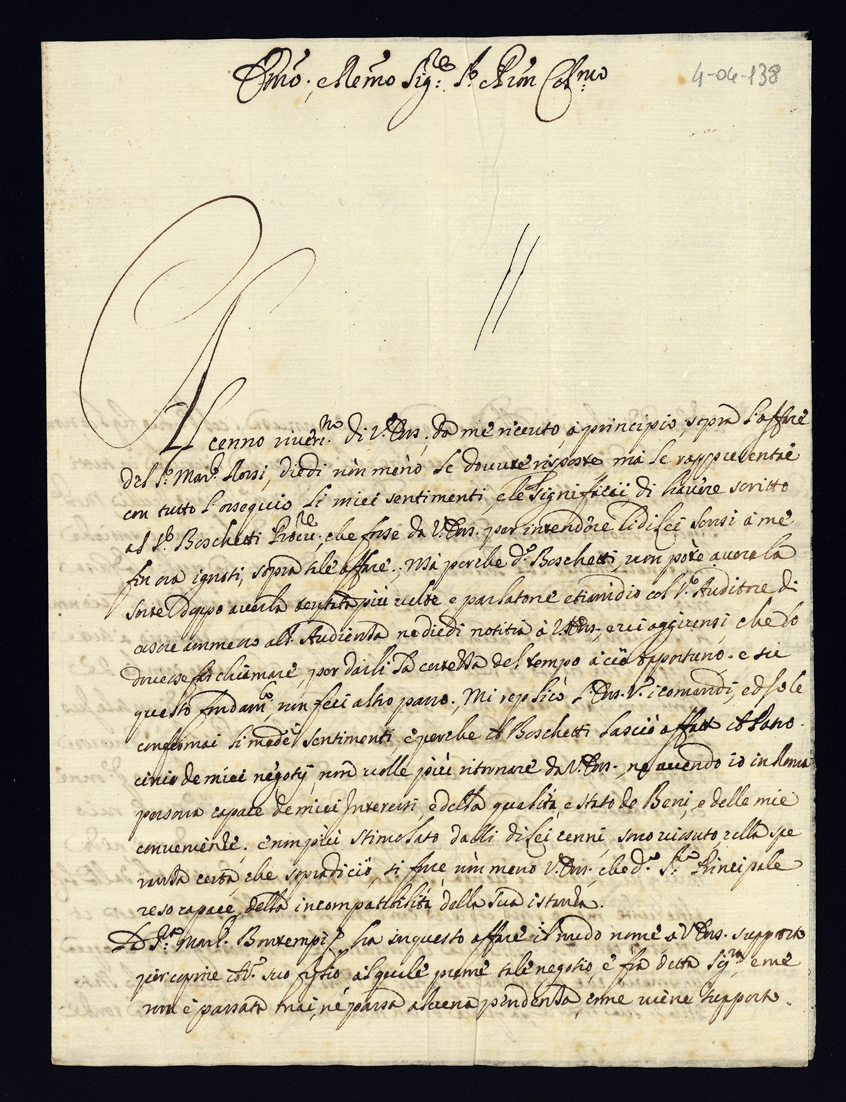 Em̃o, e Rev̄mo Sig.re P̄ron Col.mo
4-04-138
Al cenno river.mo di V. Em̄. da me ricevuto à principio, sopra l'affare
del S.r March. diedi non meno le dovute risposte, ma le rappresentai
con tutto l'ossequio li miei sentimenti, e le significai di havere scritto
al S.r Boschetti che fusse da V. Em̄. per intendere li di lei sensi à me
fin ora ignoti, sopra tale affare. Mà perche d.o Boschetti, non potè avere la
sorte doppo averla tentata più volte e parlatone etiamdio col S.r Auditore di
essere ammesso all'Audienza ne diedi notitia à V. Em̄. che lo
dovesse far chiamare, per darli la certezza del tempo à ciò opportuno. e siè
questo non feci altro passo. Mi replicò l'Em̄. V.a i comandi, ed io le
confermai li med.i sentimenti, e perche il Boschetti lasciò affatto il Patro-
cinio de miei negotij, non volle più ritornare da V. Em̄. ne avendo io in Roma
persona capace de miei Interessi, e della qualità, e stato de Beni, e delle mie
convenienze. e non più stimolato dalli di lei cenni, sono vissuto, nella spe
ranza certa che si fusse non meno V. Em̄. che d.o S.r Principale
reso capace della incompatibilità della sua istanza.
La S.ra March. Bontempi ha in questo affare il nudo nome a V. Em̄. supposto
per coprire il suo figlio al quale preme tale negotio, e frà detta Sig.ra, e me
non è passata mai, ne passa alcuna pendenza, come viene supposto.